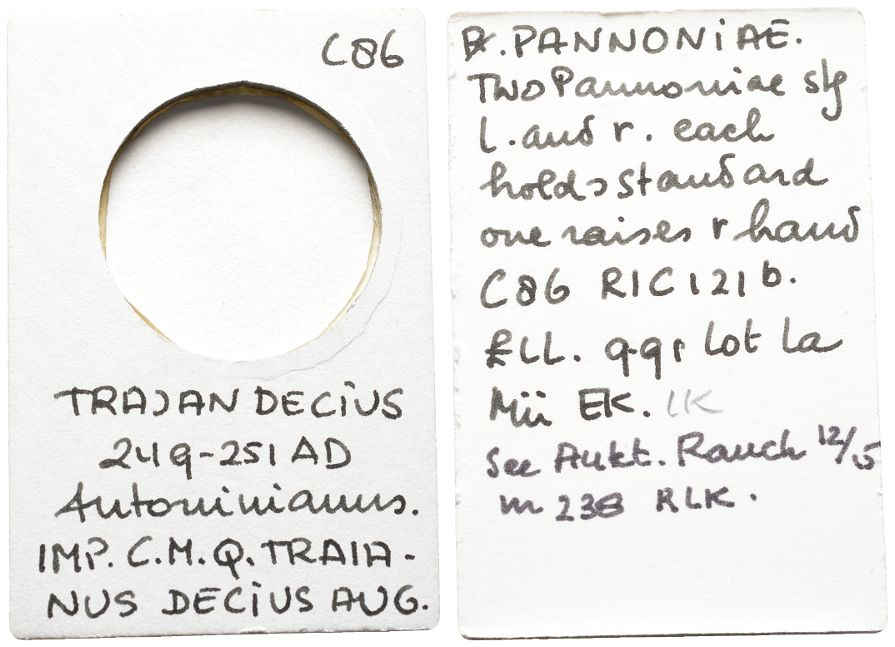 C86
TRAJAN DECIUS
249-251 AD
Antoninianus.
IMP. C.M.Q. TRAIA-
NUS DECIUS AUG.
R. PANNONIAE.
Two Pannoniae stg
l. and r. each
holds standard
one raises r hand
C86 RIC 121 b.
£LL. 9-91 lot
EK. LK
See Aukt. Rauch 12/5
m 238 RLK.